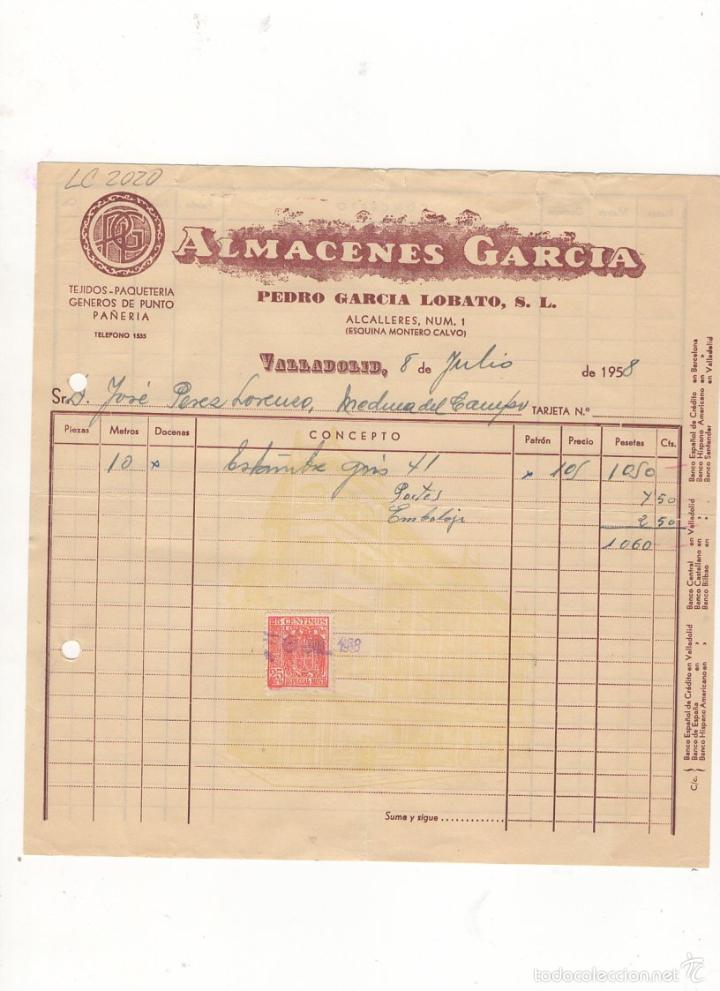 LC 2020
ALMACENES GARCIA
PEDRO GARCIA LOBATO, S. L.
ALCALLERES, NUM. 1
(ESQUINA MONTERO CALVO)
TEJIDOS-PAQUETERIA
GENEROS DE PUNTO
PAÑERIA
TELEFONO 1535
VALLADOLID, 8 de Julio de 1958
Sr. D. José Perez Lorenzo, Medina del Campo TARJETA N.º
Piezas Metros Docenas CONCEPTO Patrón Precio Pesetas Cts.
10 x Estambre gris 41 x 105 1050
Portes 7 50
Embalaje 2 50
1060
25 CENTIMOS
25
ESPECIAL MOVIL
1958
Suma y sigue
C/c.
Banco Español de Crédito en Valladolid
Banco de España en »
Banco Hispano Americano en »
Banco Central en Valladolid
Banco Castellano en »
Banco Bilbao en »
Banco Español de Crédito en Barcelona
Banco Hispano Americano en »
Banco Santander en Valladolid
todocoleccion.net